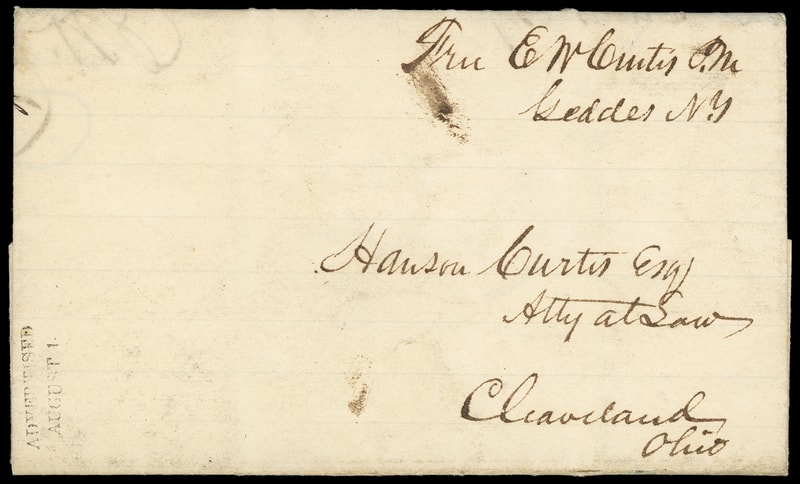 Free E W Curtis P.M
Geddes NY
Hanson Curtis Esq
Atty at Law
Cleaveland
Ohio
ADVERTISED
AUGUST 1